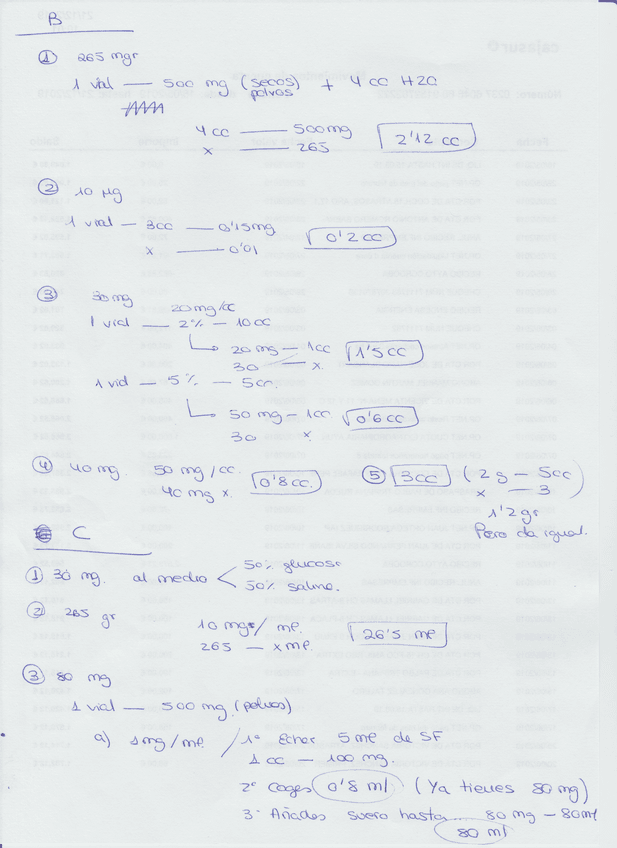 B
① 265 mgr
1 vial — 500 mg (secos) + 4 cc H2O
polvos
4 cc — 500 mg
x — 265
2'12 cc
② 10 µg
1 vial — 3cc — 0'15 mg
x — 0'01
0'2 cc
③ 30 mg
20 mg/cc
1 vial — 2% — 10 cc
20 mg — 1cc
30 — x.
1'5 cc
1 vial — 5% — 5cc.
50 mg — 1cc
30 x.
0'6 cc
④ 40 mg. 50 mg/cc.
40 mg x.
0'8 cc.
⑤ 3cc (2 g — 5cc
x — 3)
1'2 gr
Pero da igual.
C
① 30 mg. al medio < 50% glucosa
50% salino.
② 265 gr
10 mgr/ml.
265 — x ml.
26'5 ml
③ 80 mg
1 vial — 500 mg (polvos)
a) 1 mg/ml / 1º Echar 5 ml de SF
1 cc — 100 mg.
2º Coges 0'8 ml (Ya tienes 80 mg)
3º Añades suero hasta... 80 mg — 80ml
80 ml